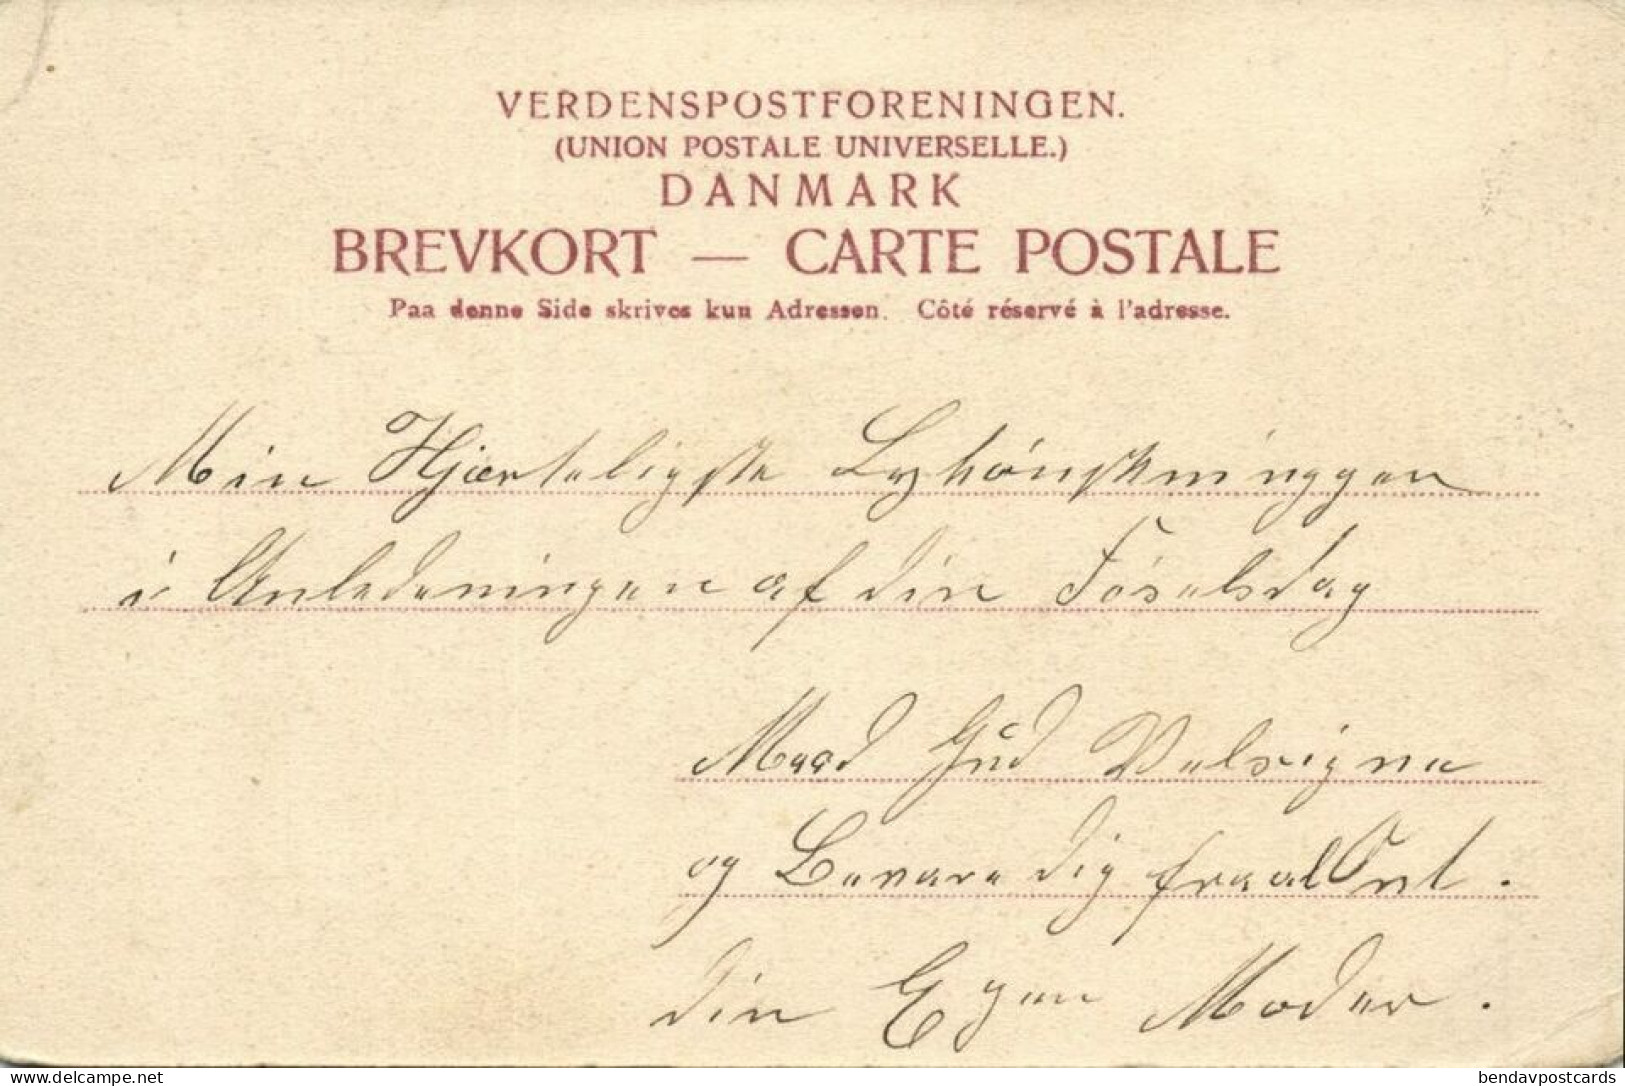 VERDENSPOSTFORENINGEN.
(UNION POSTALE UNIVERSELLE.)
DANMARK
BREVKORT — CARTE POSTALE
Paa denne Side skrives kun Adressen. Côté réservé à l'adresse.
Min Hjærteligste Lyhönskninggen
i Anledeningen af din Föselsdag
Maad Gud Velsigne
og Bevare dig fra al Ont.
din Egen Moder.
delcampe.net
bendavpostcards